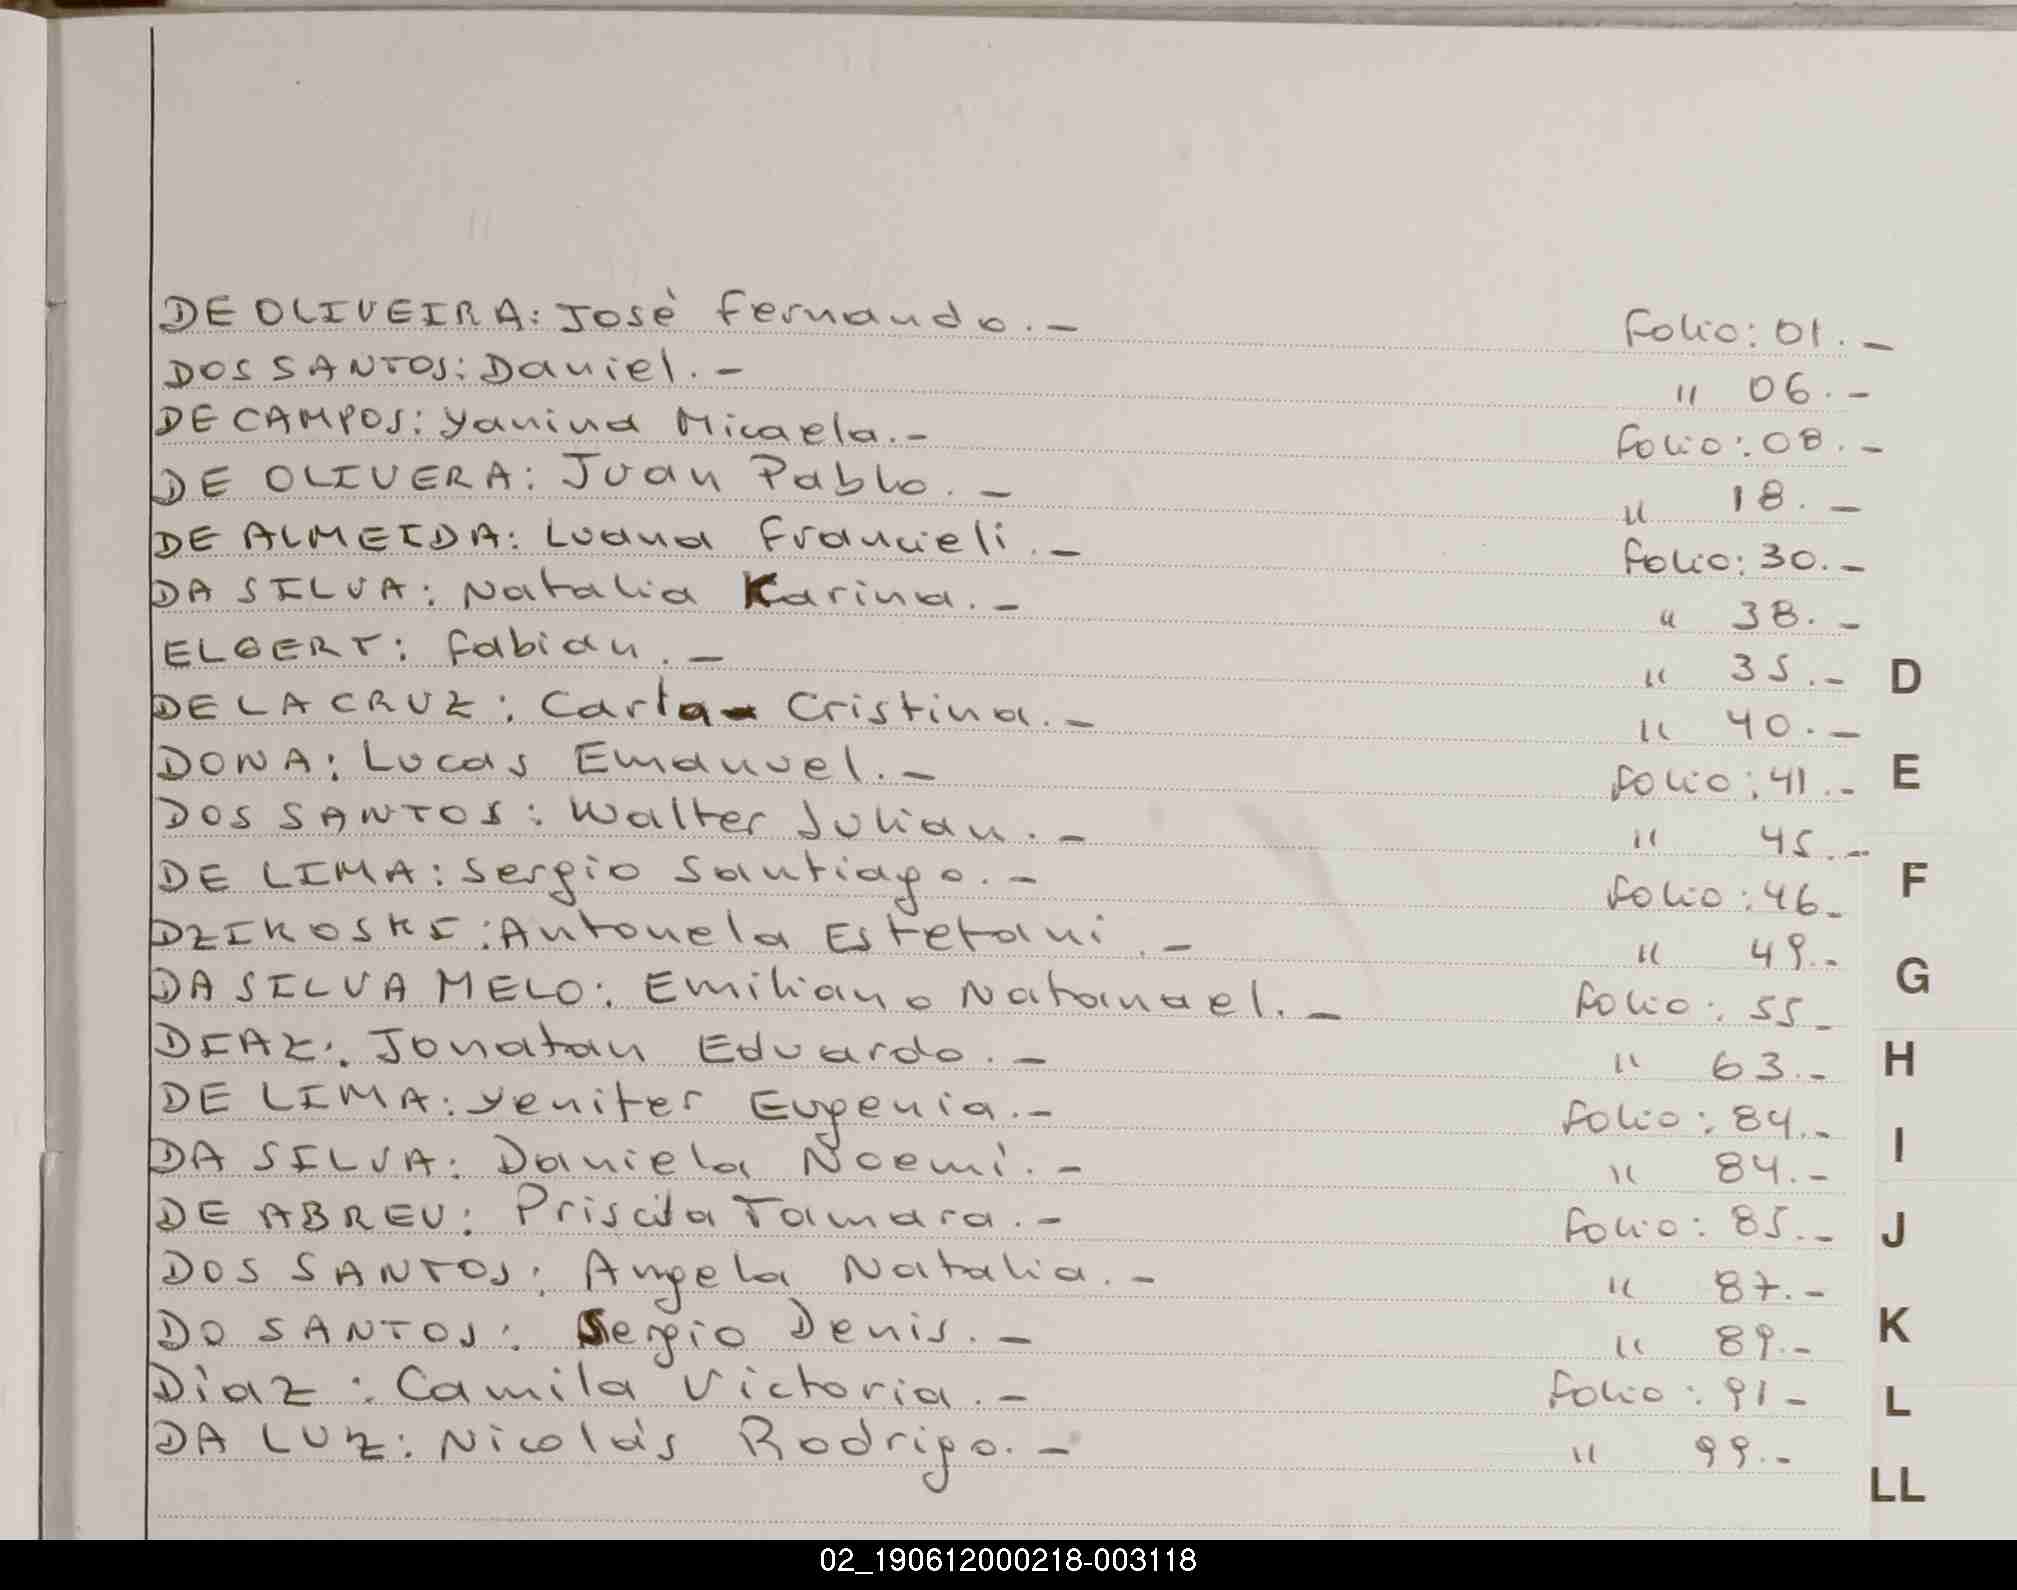 DE OLIVEIRA: José Fernando.- Folio: 01.-
DOS SANTOS: Daniel.- " 06.-
DE CAMPOS: Yanina Micaela.- Folio: 08.-
DE OLIVERA: Juan Pablo.- " 18.-
DE ALMEIDA: Luana Francieli.- Folio: 30.-
DA SILVA: Natalia Karina.- " 38.-
ELGERT: Fabian.- " 35.-
D
DE LA CRUZ: Carla- Cristina.- " 40.-
DONA: Lucas Emanuel.- Folio: 41.-
E
DOS SANTOS: Walter Julian.- " 45.-
DE LIMA: Sergio Santiago.- Folio: 46-
F
DZIKOSKI: Antonela Estefani.- " 49.-
G
DA SILVA MELO: Emiliano Natanael.- Folio: 55-
DIAZ: Jonatan Eduardo.- " 63.-
H
DE LIMA: Yenifer Eugenia.- Folio: 84.-
DA SILVA: Daniela Noemí.- " 84.-
I
DE ABREU: Priscila Tamara.- Folio: 85.-
J
DOS SANTOS: Angela Natalia.- " 87.-
DO SANTOS: Sergio Denis.- " 89.-
K
Díaz: Camila Victoria.- Folio: 91-
L
DA LUZ: Nicolás Rodrigo.- " 99.-
LL
02_190612000218-003118